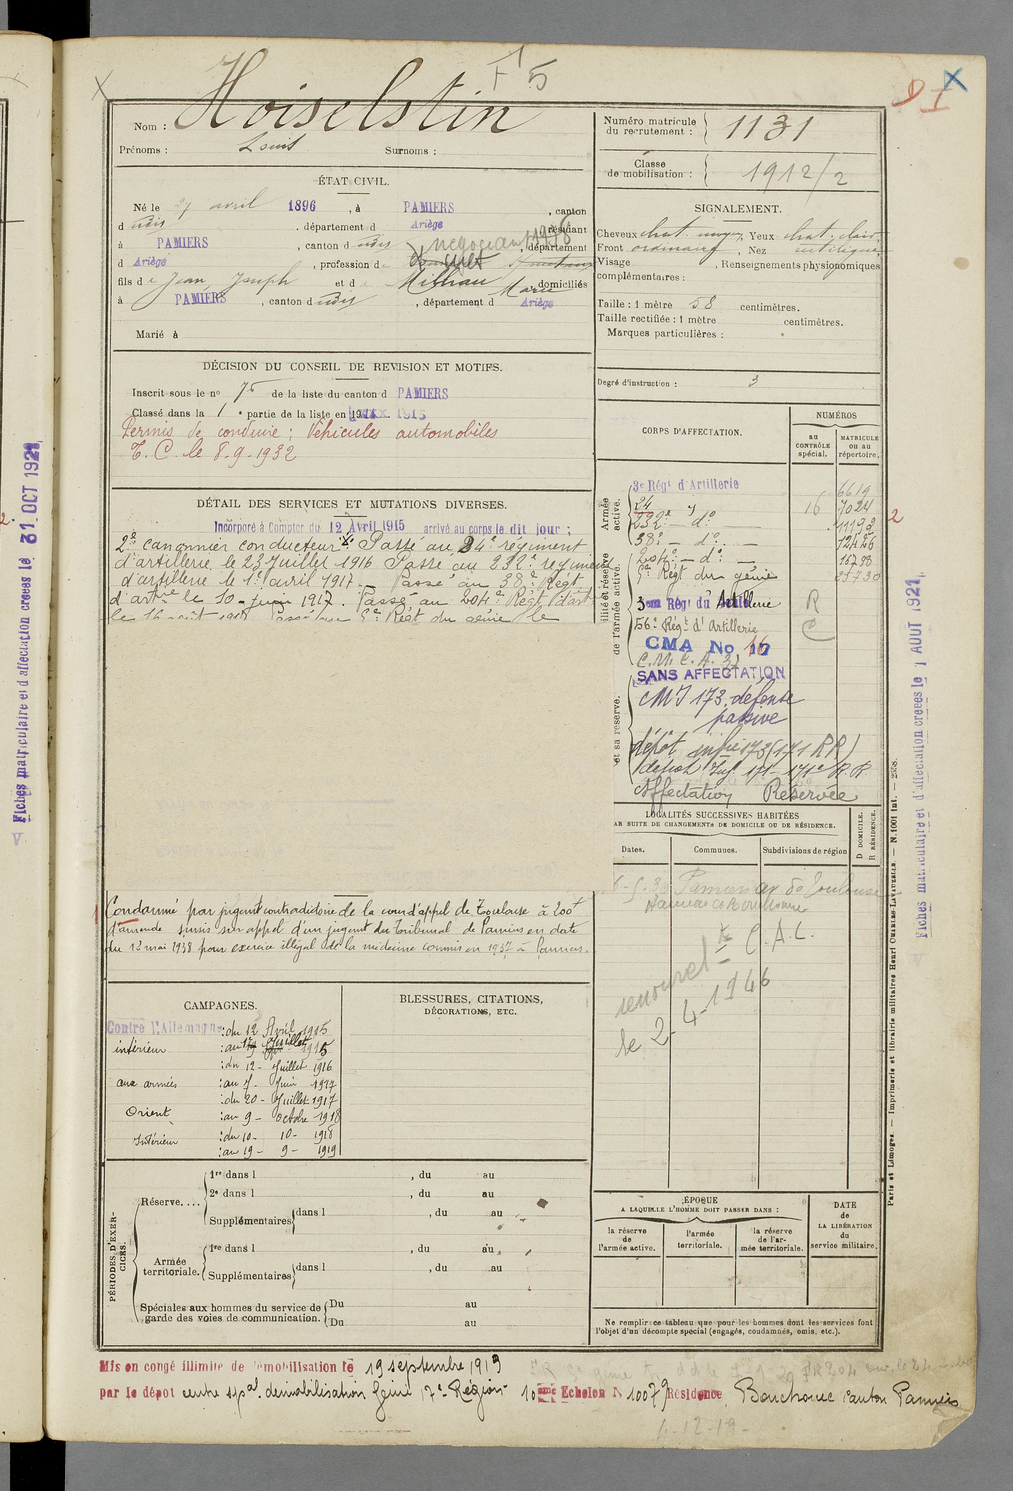 F 5
D I
Nom : Hoiselstin
Prénoms : Louis Surnoms :
Numéro matricule du recrutement : 1131
Classe de mobilisation : 1912/2
ÉTAT CIVIL.
Né le avril 1896, à PAMIERS, canton
d udis, département d Ariège, résidant
à PAMIERS, canton d udis, département
d Ariège, profession de négociant
fils de Jean Joseph et de Milhau Marie domiciliés
à PAMIERS, canton d udis, département d Ariège
Marié à
SIGNALEMENT.
Cheveux chat. moyen, Yeux chat. clair
Front ordinaire, Nez rectiligne
Visage , Renseignements physionomiques
complémentaires :
Taille : 1 mètre 58 centimètres.
Taille rectifiée : 1 mètre centimètres.
Marques particulières :
Degré d'instruction : 3
DÉCISION DU CONSEIL DE REVISION ET MOTIFS.
Inscrit sous le no 75 de la liste du canton d PAMIERS
Classé dans la 1e partie de la liste en 1915
Permis de conduire : Véhicules automobiles
T. C. le 8-9-1932
DÉTAIL DES SERVICES ET MUTATIONS DIVERSES.
Incorporé à Compter du 12 Avril 1915 arrivé au corps le dit jour ;
2e canonnier conducteur. Passé au 24e régiment
d'artillerie, le 23 Juillet 1916 Passé au 232e régiment
d'artillerie le 1er avril 1917. Passé au 38e Régt
d'artie le 10 juin 1917. Passé au 204e Régt d'art
le 16 août Passé au Régt du génie le
Condamné par jugemt contradictoire de la cour d'appel de Toulouse à 200f
d'amende sursis sur appel d'un jugemt du Tribunal de Pamiers en date
du 12 mai 1938 pour exercice illégal de la médecine commis en 1937 à Pamiers.
CORPS D'AFFECTATION.
NUMÉROS
au CONTRÔLE spécial.
MATRICULE ou au RÉPERTOIRE.
Armée active.
3e Régt d'Artillerie 6619
24 16 7024
232e — do — 11192
38e — do — 12426
204e — do —
Régt du génie
3eme Régt du Artillerie R
56e Régt d'Artillerie
CMA No 16
SANS AFFECTATION
CMI 173 défense
passive
dépôt infie 173 (171 RR)
dépôt Inf 171 - 171e R.R
Affectation Réservée
LOCALITÉS SUCCESSIVES HABITÉES
PAR SUITE DE CHANGEMENTS DE DOMICILE OU DE RÉSIDENCE.
Dates. Communes. Subdivisions de région D DOMICILE. R RÉSIDENCE.
Pamiers Toulouse
C.A.C.
renouvelt
le 2-4-1946
CAMPAGNES.
Contre l'Allemagne : du 12 Avril 1915
intérieur : au Juillet
: du 12 - Juillet 1916
aux armées : au 7 - Juin 1917
: du 20 - Juillet 1917
Orient : au 9 - octobre 1918
Intérieur : du 10 - 10 - 1918
: au 19 - 9 - 1919
BLESSURES, CITATIONS,
DÉCORATIONS, ETC.
PÉRIODES D'EXERCICES.
Réserve.... 1re dans l , du au
2e dans l , du au
Supplémentaires dans l , du au
Armée territoriale. 1re dans l , du au
Supplémentaires dans l , du au
Spéciales aux hommes du service de garde des voies de communication. Du au
Du au
ÉPOQUE
A LAQUELLE L'HOMME DOIT PASSER DANS :
la réserve de l'armée active.
l'armée territoriale.
la réserve de l'armée territoriale.
DATE de LA LIBÉRATION du service militaire.
Ne remplir ce tableau que pour les hommes dont les services font
l'objet d'un décompte spécial (engagés, condamnés, omis, etc.).
Mis en congé illimité de démobilisation le 19 septembre 1919
par le dépôt centre spal démobilisation Génie 17e Région 10eme Echelon N 10079 Résidence Canton Pamiers
Fiches matriculaire et d'affectation créées le 31 OCT 1921
Fiches matriculaire et d'affectation créées le 1 AOUT 1921
Paris et Limoges. — Imprimerie et librairie militaires Henri CHARLES-LAVAUZELLE. — N. 1001 int. —